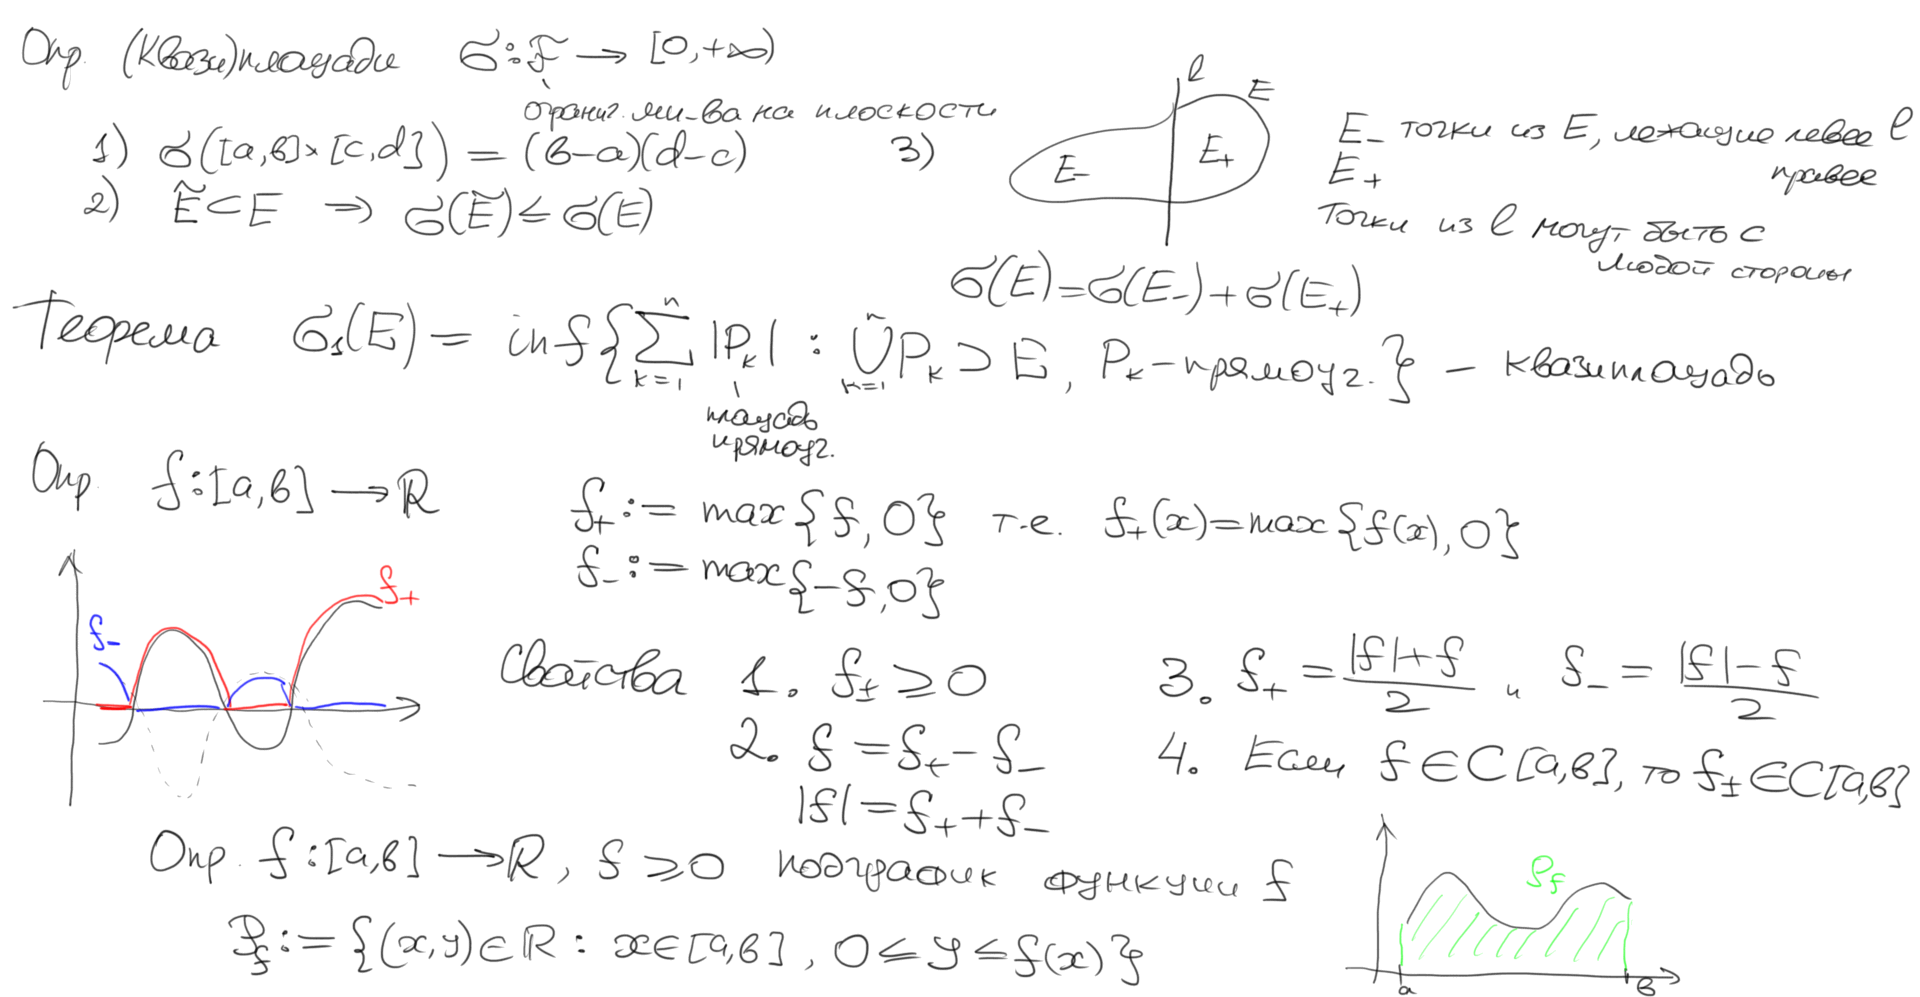 Опр. (Квази)площади σ: F → [0,+∞)
огранич. мн-ва на плоскости
1) σ([a,b]×[c,d]) = (b-a)(d-c)
2) Ẽ⊂E ⇒ σ(Ẽ) ≤ σ(E)
3)
l
E
E₋
E₊
E₋ точки из E, лежащие левее l
E₊ правее
Точки из l могут быть с
любой стороны
σ(E)=σ(E₋)+σ(E₊)
Теорема σ₁(E) = inf{∑_{k=1}^{n} |P_k| : ⋃_{k=1}^{n} P_k ⊃ E, P_k - прямоуг.} - квазиплощадь
площадь
прямоуг.
Опр. f:[a,b] → ℝ
f₊ := max{f, 0} т.е. f₊(x)=max{f(x), 0}
f₋ := max{-f, 0}
f₊
f₋
Свойства 1. f± ≥ 0
2. f = f₊ - f₋
|f| = f₊ + f₋
3. f₊ = (|f|+f)/2 и f₋ = (|f|-f)/2
4. Если f ∈ C[a,b], то f± ∈ C[a,b]
Опр. f:[a,b] → ℝ, f ≥ 0 подграфик функции f
P_f := {(x,y)∈ℝ : x∈[a,b], 0 ≤ y ≤ f(x)}
P_f
a
b